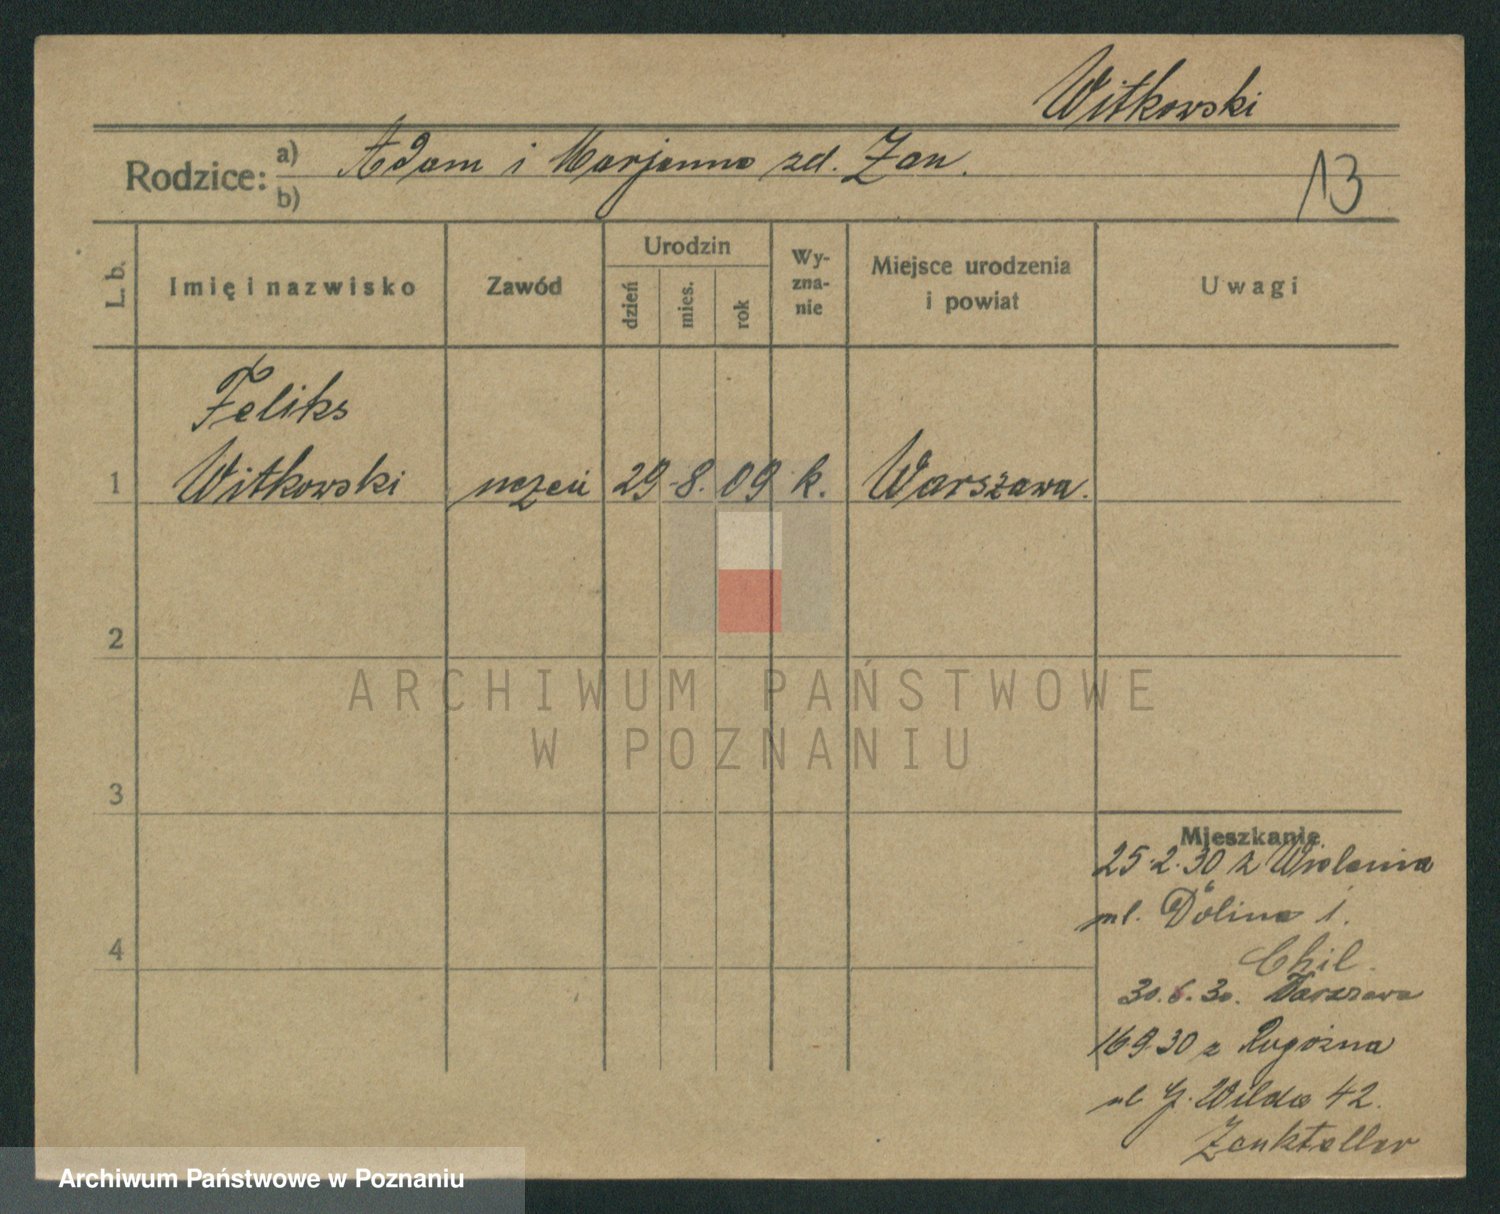 Witkowski
Rodzice: a) Adam i Marjanna zd. Zan.
b)
13
L. b. Imię i nazwisko Zawód Urodzin dzień mies. rok Wyznanie Miejsce urodzenia i powiat Uwagi
Feliks
1 Witkowski uczeń 29 8. 09 k. Warszawa.
2
ARCHIWUM PAŃSTWOWE
W POZNANIU
3
Mieszkanie
25.2.30 z
ul. Dolina 1.
4
Chil.
30.6.30. Warszawa
16 9.30 z Rogoźna
ul G. Wilda 42.
Zankteller
Archiwum Państwowe w Poznaniu